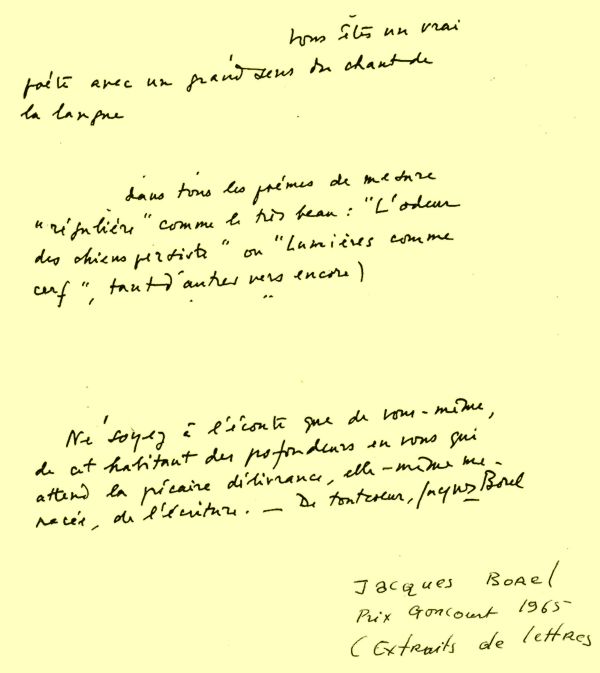 vous êtes un vrai
poète avec un grand sens du chant de
la langue
dans tous les poèmes de mesure
"régulière" comme le très beau : "L'odeur
des chiens persiste" ou "Lumières comme
cerf", tant d'autres vers encore)
Ne soyez à l'écoute que de vous-même,
de cet habitant des profondeurs en vous qui
attend la précaire délivrance, elle-même me-
nacée, de l'écriture. — De tout coeur, Jacques Borel
Jacques Borel
Prix Goncourt 1965
(Extraits de lettres